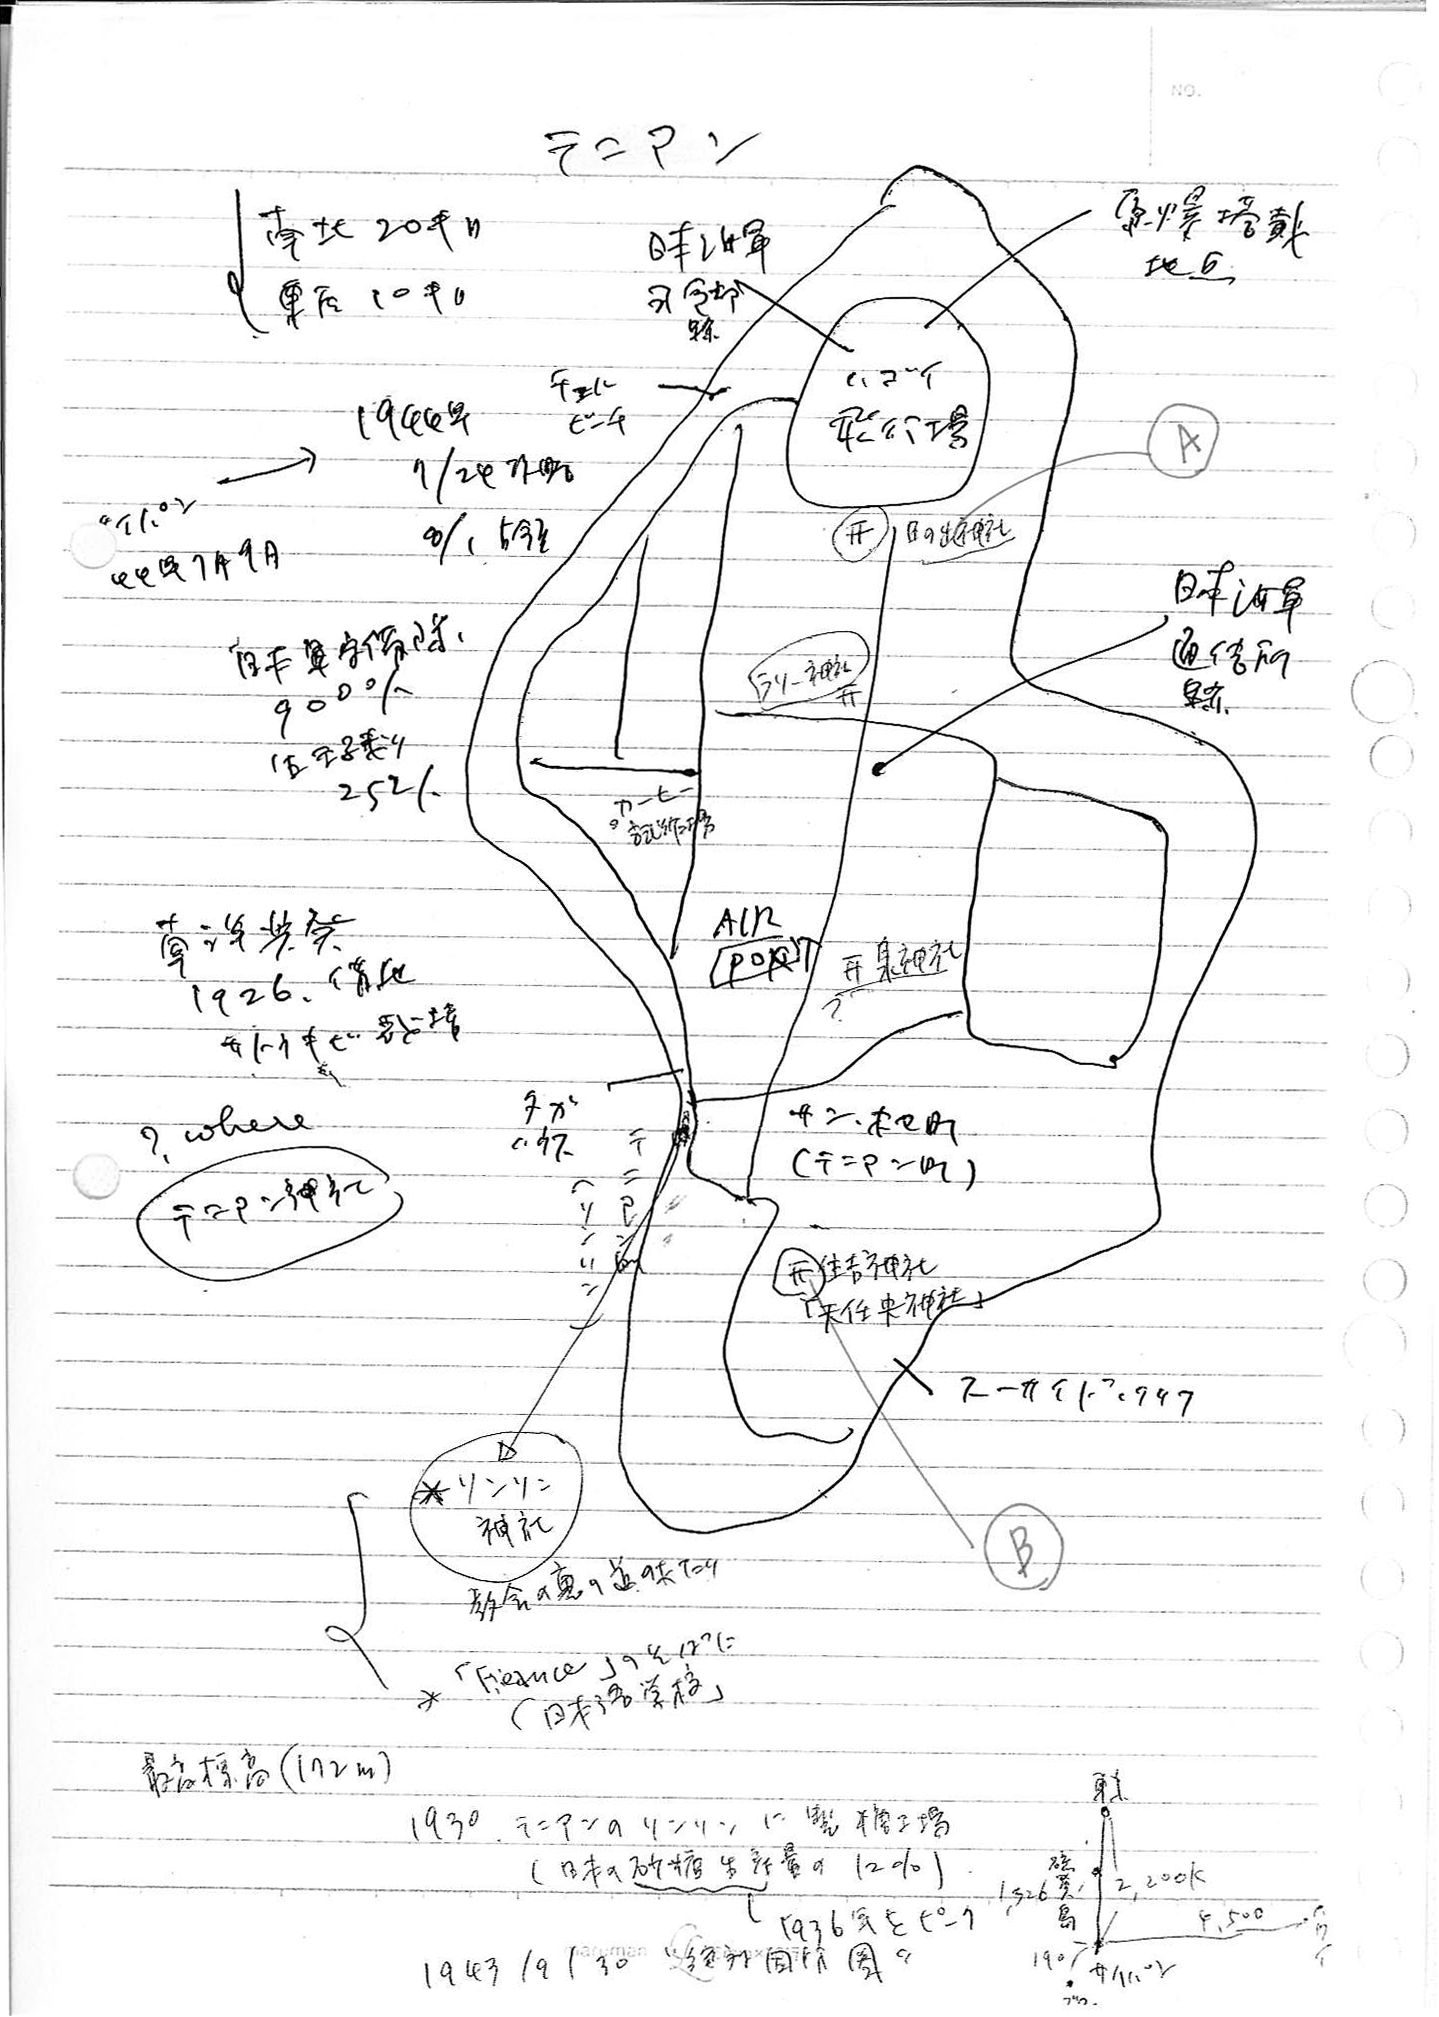 NO.
テニアン
南北 20キロ
東西 10キロ
日本海軍
司令部
跡
原爆搭載
地点
チュル
ビーチ
ハゴイ
飛行場
A
1944年
7/24 攻略
8/1 占領
サイパン
44年7月9日
日の出神社
日本海軍
通信所
跡
日本軍守備隊
9000人
ラソー神社
コーヒー
試作工場
AIR
PORT
泉神社
?
1926.
?, where
テニアン神社
タガ
ハウス
テニアン町
(ソンソン)
サン・ホセ町
(テニアン町)
住吉神社
「天仁安神社」
スーサイドクリフ
B
* ソンソン
神社
教会の裏の
* 「Fiesance」のそばに
(日本語学校)
最高標高(172m)
1930. テニアンのソンソンに製糖工場
(日本の砂糖生産量の12%)
1936年をピーク
1943/9/30 "絶対国防圏"
maruman
東京
硫黄島
2,200K
4,500
ハワイ
190
サイパン
グアム